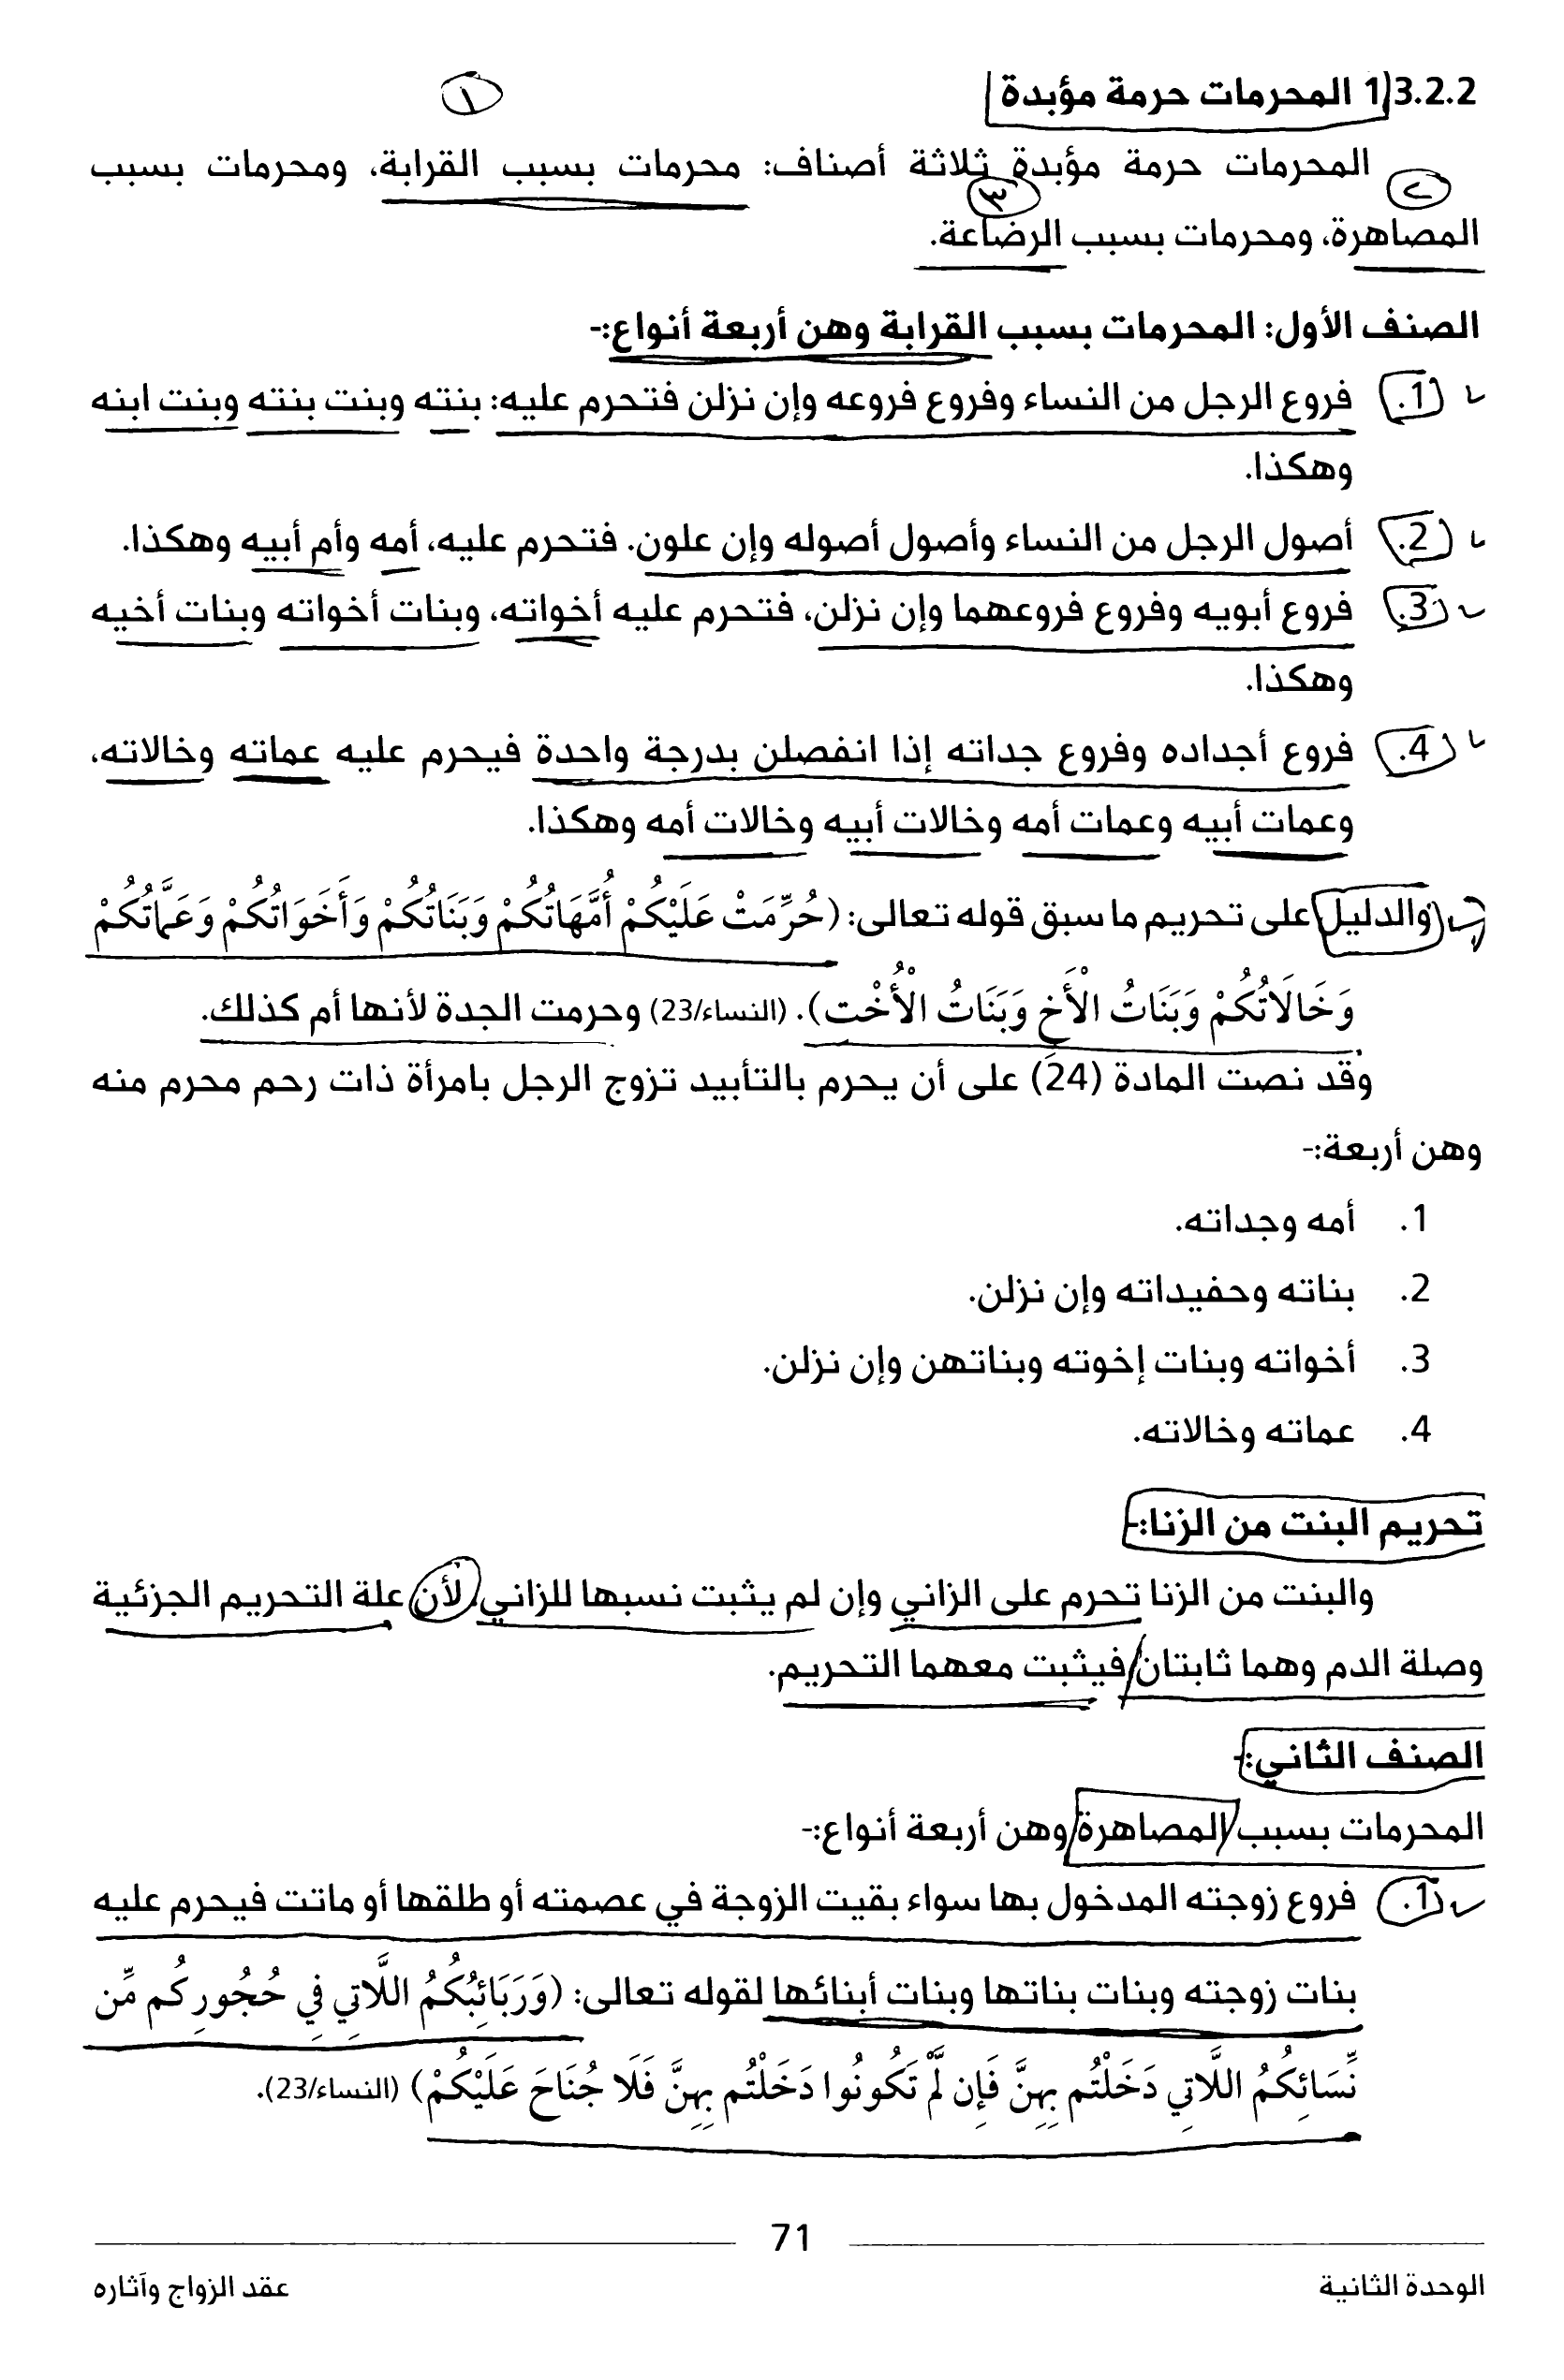 1.3.2.2 المحرمات حرمة مؤبدة
١
المحرمات حرمة مؤبدة ثلاثة أصناف: محرمات بسبب القرابة، ومحرمات بسبب
٢
٣
المصاهرة، ومحرمات بسبب الرضاعة.
الصنف الأول: المحرمات بسبب القرابة وهن أربعة أنواع:-
1. فروع الرجل من النساء وفروع فروعه وإن نزلن فتحرم عليه: بنته وبنت بنته وبنت ابنه
وهكذا.
2. أصول الرجل من النساء وأصول أصوله وإن علون. فتحرم عليه، أمه وأم أبيه وهكذا.
3. فروع أبويه وفروع فروعهما وإن نزلن، فتحرم عليه أخواته، وبنات أخواته وبنات أخيه
وهكذا.
4. فروع أجداده وفروع جداته إذا انفصلن بدرجة واحدة فيحرم عليه عماته وخالاته،
وعمات أبيه وعمات أمه وخالات أبيه وخالات أمه وهكذا.
والدليل على تحريم ما سبق قوله تعالى: (حُرِّمَتْ عَلَيْكُمْ أُمَّهَاتُكُمْ وَبَنَاتُكُمْ وَأَخَوَاتُكُمْ وَعَمَّاتُكُمْ
وَخَالَاتُكُمْ وَبَنَاتُ الْأَخِ وَبَنَاتُ الْأُخْتِ). (النساء/23) وحرمت الجدة لأنها أم كذلك.
وقد نصت المادة (24) على أن يحرم بالتأبيد تزوج الرجل بامرأة ذات رحم محرم منه
وهن أربعة:-
1. أمه وجداته.
2. بناته وحفيداته وإن نزلن.
3. أخواته وبنات إخوته وبناتهن وإن نزلن.
4. عماته وخالاته.
تحريم البنت من الزنا:-
والبنت من الزنا تحرم على الزاني وإن لم يثبت نسبها للزاني، لأن علة التحريم الجزئية
وصلة الدم وهما ثابتان فيثبت معهما التحريم.
الصنف الثاني:-
المحرمات بسبب المصاهرة وهن أربعة أنواع:-
1. فروع زوجته المدخول بها سواء بقيت الزوجة في عصمته أو طلقها أو ماتت فيحرم عليه
بنات زوجته وبنات بناتها وبنات أبنائها لقوله تعالى: (وَرَبَائِبُكُمُ اللَّاتِي فِي حُجُورِكُم مِّن
نِّسَائِكُمُ اللَّاتِي دَخَلْتُم بِهِنَّ فَإِن لَّمْ تَكُونُوا دَخَلْتُم بِهِنَّ فَلَا جُنَاحَ عَلَيْكُمْ) (النساء/23).
71
الوحدة الثانية
عقد الزواج وآثاره